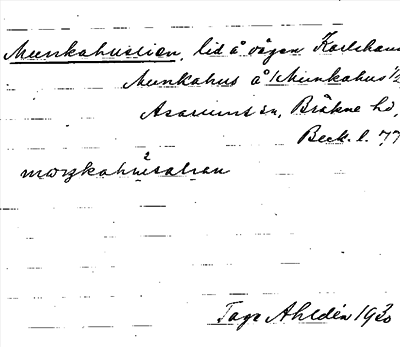 Munkahuslien, lid å vägen Karlshamn
Munkahus å Munkahus 1/2
Asarums sn, Bräkne hd,
Beck. l. 77
Tage Ahldén 1930